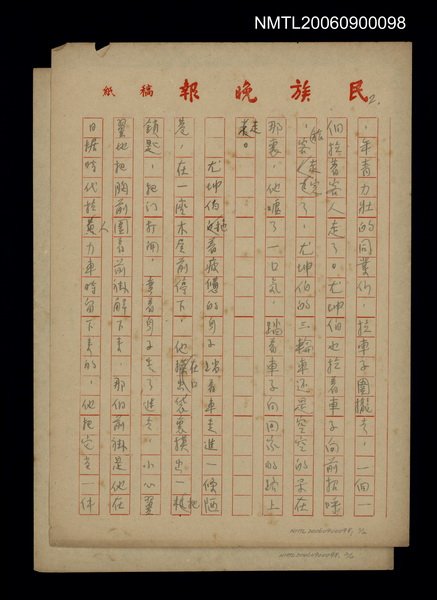 NMTL20060900098
民族晚報 稿紙
2.
，年青力壯的同業們，拉車子圍攏去，一個一
個拉着客人走了。尤坤伯也拉着車子向前招呼
，客人走完了，尤坤伯的三輪車还是空空的呆在
那裏，他嘘了一口氣，踏着車子向回家的路上
走去。
尤坤伯拖着疲憊的身子踏着車走進一條陋
巷，在一座木屋前停下，他在口袋裏摸出一根把
鎖匙，把门打開，牽着身子先了進去，小心翼
翼地把胸前圍着前掛解下来，那個前掛是他在
日據時代拉黄人力車時留下来的，他把它当一件
NMTL20060900098, 2/2
NMTL20060900098, 2/2